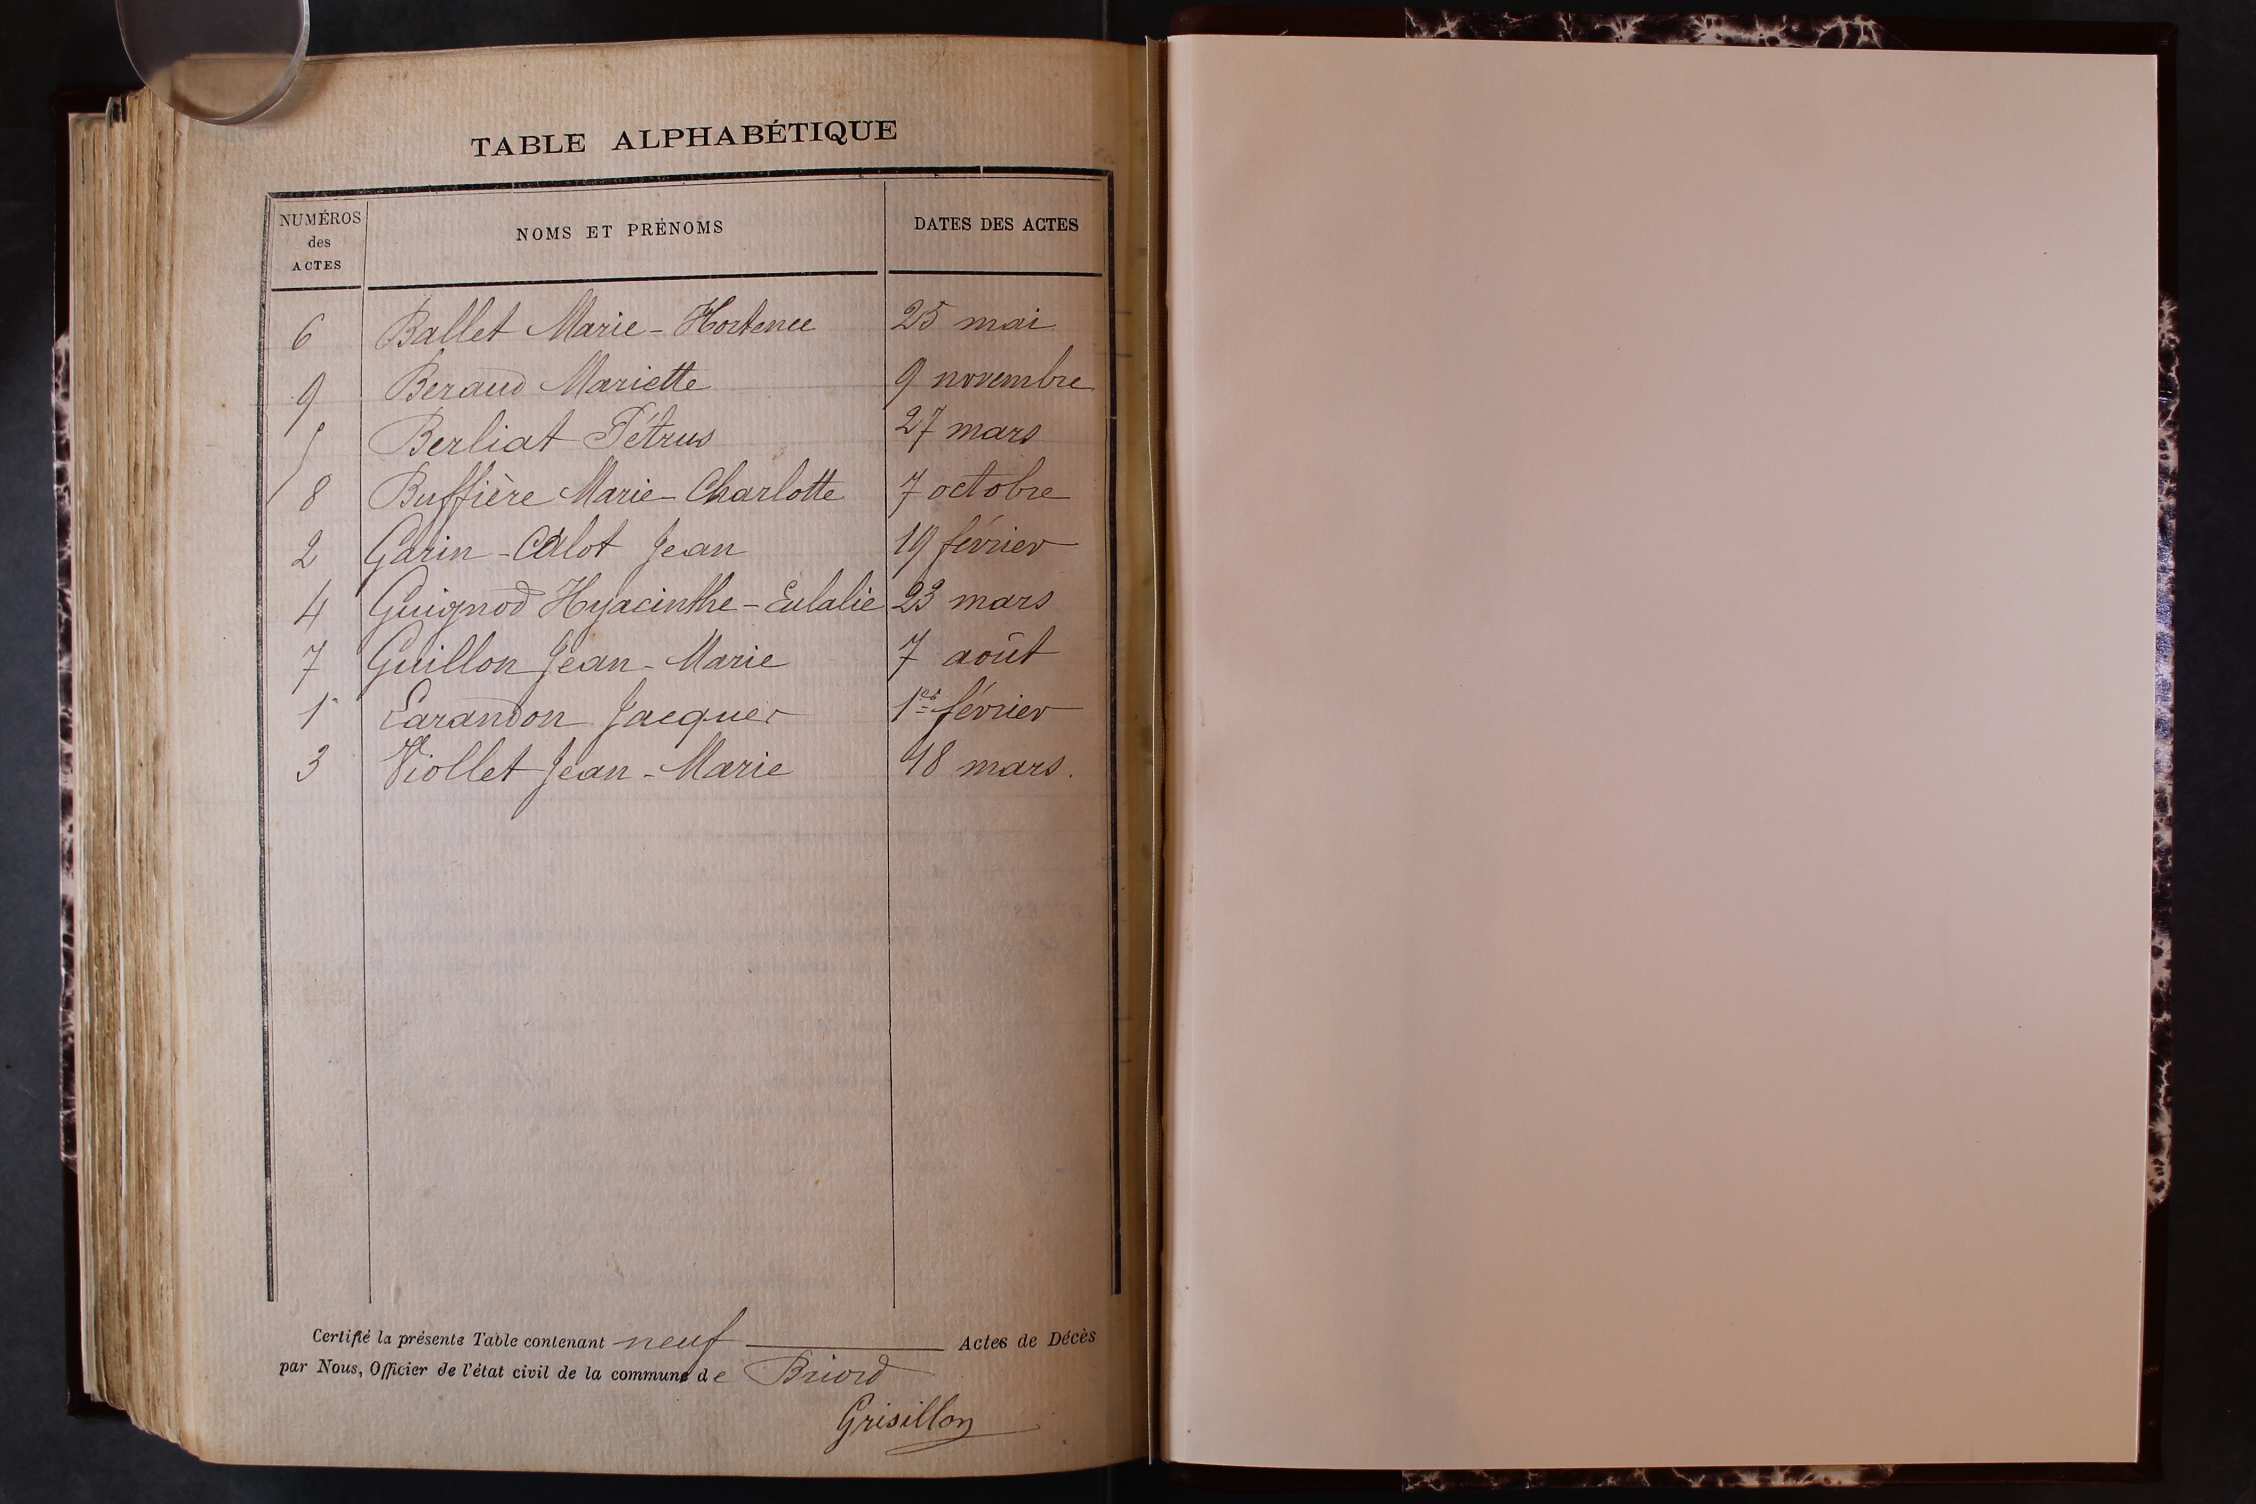 TABLE ALPHABÉTIQUE
NUMÉROS des ACTES NOMS ET PRÉNOMS DATES DES ACTES
6 Ballet Marie-Hortence 25 mai
9 Beraud Mariette 9 novembre
5 Berliat Pétrus 27 mars
8 Buffière Marie-Charlotte 7 octobre
2 Garin-Calot Jean 19 février
4 Guignod Hyacinthe-Eulalie 23 mars
7 Guillon Jean-Marie 7 août
1 Larandon Jacques 1er février
3 Viollet Jean-Marie 18 mars.
Certifié la présente Table contenant neuf Actes de Décès
par Nous, Officier de l'état civil de la commune de Briord
Grisillon